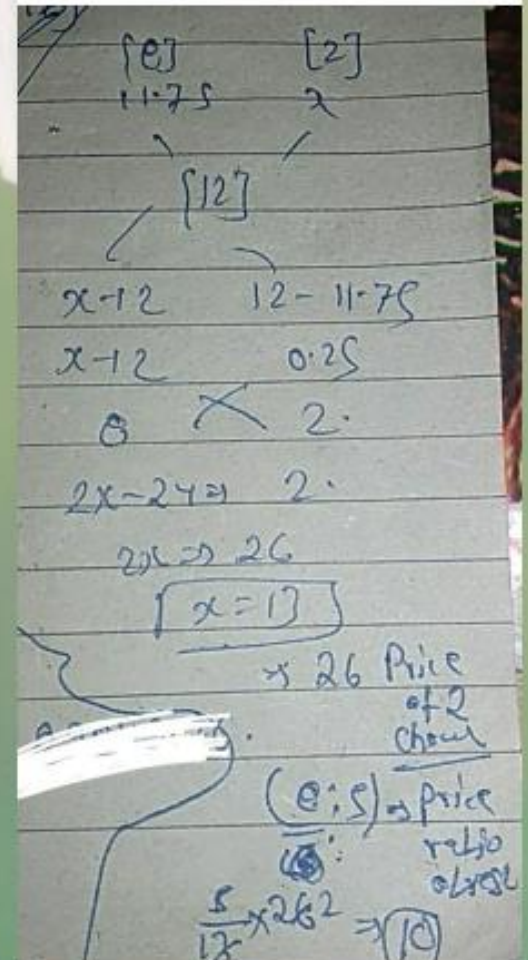 [8] [2]
11.75 x
[12]
x-12 12-11.75
x-12 0.25
8 2.
2x-24⇒ 2.
2x ⇒ 26
x = 13
→ 26 Price
of 2
(8:5) ⇒ Price
ratio
5/13 × 26 2 ⇒ 10